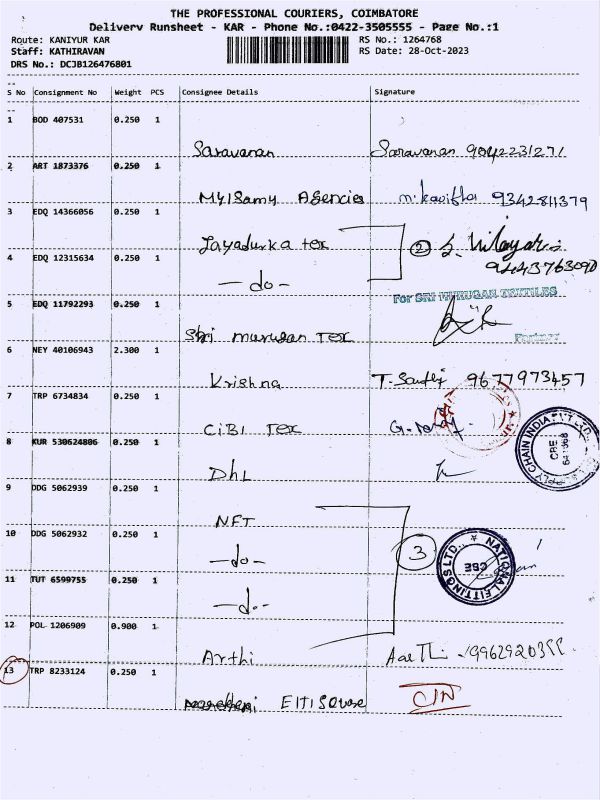 THE PROFESSIONAL COURIERS, COIMBATORE
Delivery Runsheet - KAR - Phone No.:0422-3505555 - Page No.:1
Route: KANIYUR KAR RS No.: 1264768
Staff: KATHIRAVAN RS Date: 28-Oct-2023
DRS No.: DCJB126476801
S No Consignment No Weight PCS Consignee Details Signature
1 BOD 407531 0.250 1
Saravanan Saravanan 9042231271
2 ART 1873376 0.250 1
Mylsamy Agencies 9342811379
3 EDQ 14366056 0.250 1
Jayadurka tex 2
4 EDQ 12315634 0.250 1
-do-
For SRI MURUGAN TEXTILES
5 EDQ 11792293 0.250 1
Partner
Shri murugan Tex
6 NEY 40106943 2.300 1
Krishna 9677973457
7 TRP 6734834 0.250 1
CiBi Tex
8 KUR 530624806 0.250 1
SUPPLY CHAIN INDIA PVT LTD.
CBE
641668
DhL
9 DDG 5062939 0.250 1
NFT
10 DDG 5062932 0.250 1
-do- 3
NATIONAL FITTINGS LTD.
CBE
11 TUT 6599755 0.250 1
-do-
12 POL 1206909 0.900 1
Arthi
13 TRP 8233124 0.250 1
CIN